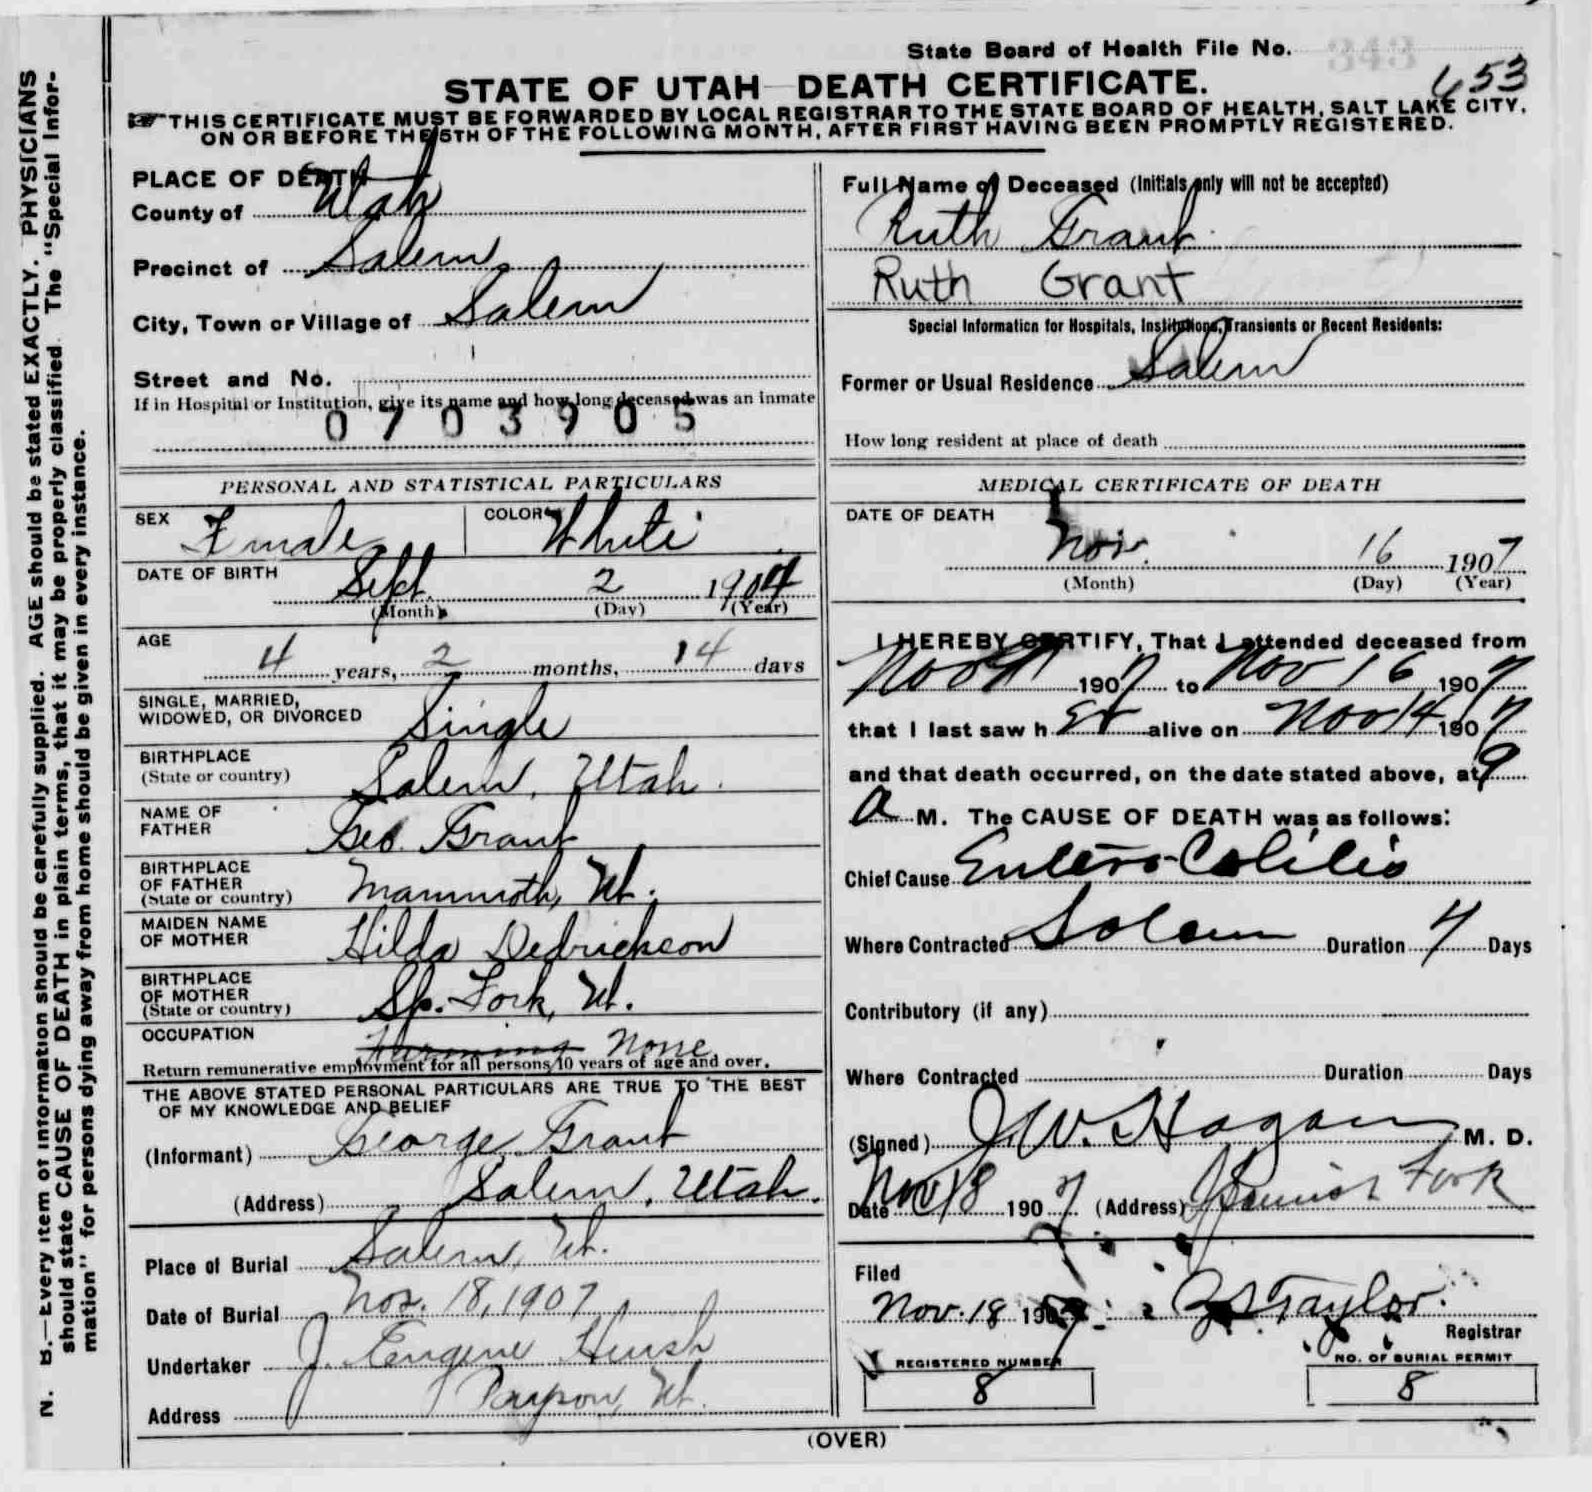 State Board of Health File No. 343
653
STATE OF UTAH—DEATH CERTIFICATE.
THIS CERTIFICATE MUST BE FORWARDED BY LOCAL REGISTRAR TO THE STATE BOARD OF HEALTH, SALT LAKE CITY,
ON OR BEFORE THE 5TH OF THE FOLLOWING MONTH, AFTER FIRST HAVING BEEN PROMPTLY REGISTERED.
N. B.—Every item of information should be carefully supplied. AGE should be stated EXACTLY. PHYSICIANS
should state CAUSE OF DEATH in plain terms, that it may be properly classified. The "Special Infor-
mation" for persons dying away from home should be given in every instance.
PLACE OF DEATH
County of Utah
Precinct of Salem
City, Town or Village of Salem
Street and No.
If in Hospital or Institution, give its name and how long deceased was an inmate
0703905
Full Name of Deceased (Initials only will not be accepted)
Ruth Grant
Ruth Grant
Special Information for Hospitals, Institutions, Transients or Recent Residents:
Former or Usual Residence Salem
How long resident at place of death
PERSONAL AND STATISTICAL PARTICULARS
SEX Female COLOR White
DATE OF BIRTH Sept. 2 1904
(Month) (Day) (Year)
AGE
4 years, 2 months, 14 days
SINGLE, MARRIED,
WIDOWED, OR DIVORCED Single
BIRTHPLACE
(State or country) Salem, Utah.
NAME OF
FATHER Geo. Grant
BIRTHPLACE
OF FATHER
(State or country) Mammoth, Ut.
MAIDEN NAME
OF MOTHER Hilda Dedrickson
BIRTHPLACE
OF MOTHER
(State or country) Sp. Fork, Ut.
OCCUPATION Farming None
Return remunerative employment for all persons 10 years of age and over.
THE ABOVE STATED PERSONAL PARTICULARS ARE TRUE TO THE BEST
OF MY KNOWLEDGE AND BELIEF
(Informant) George Grant
(Address) Salem, Utah.
Place of Burial Salem, Ut.
Date of Burial Nov. 18, 1907
Undertaker J. Eugene Huish
Address Payson, Ut.
MEDICAL CERTIFICATE OF DEATH
DATE OF DEATH
Nov. 16 1907
(Month) (Day) (Year)
I HEREBY CERTIFY, That I attended deceased from
Nov 1907 to Nov 16 1907
that I last saw her alive on Nov 14 1907
and that death occurred, on the date stated above, at 9
a M. The CAUSE OF DEATH was as follows:
Chief Cause Entero-Colitis
Where Contracted Salem Duration Days
Contributory (if any)
Where Contracted Duration Days
(Signed) J. W. Hagan M. D.
Date Nov 18 1907 (Address) Spanish Fork
Filed
Nov. 18 1907 Taylor.
Registrar
REGISTERED NUMBER
8
NO. OF BURIAL PERMIT
8
(OVER)